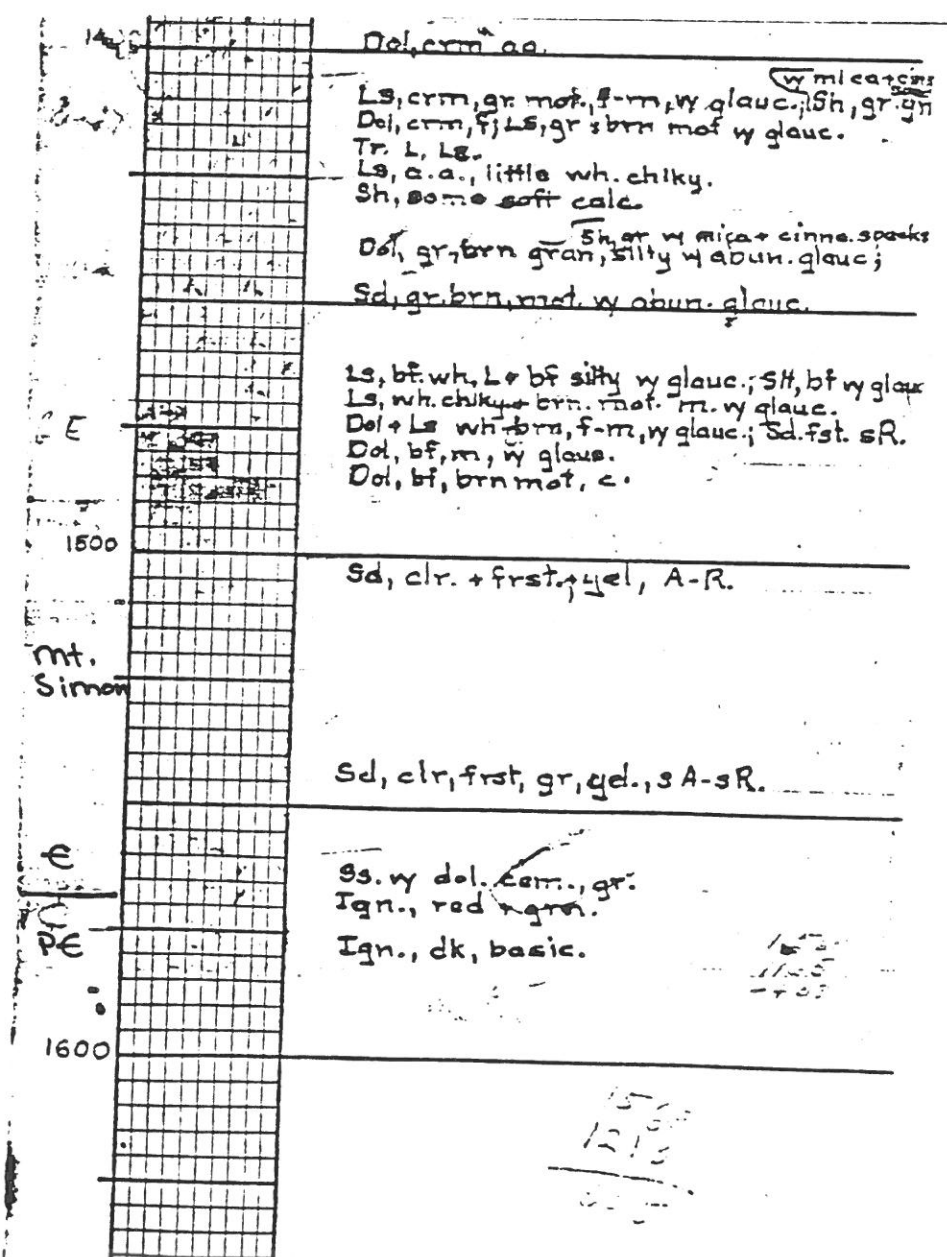 Dol, crm aa.
w mica + cinn
Ls, crm, gr. mot., f-m, w glauc.; Sh, gr. gn
Dol, crm, f; Ls, gr & brn mot w glauc.
Tr. L, Ls.
Ls, a.a., little wh. chlky.
Sh, some soft calc.
Sh, gr w mica + cinna. specks
Dol, gr, brn gran, silty w abun. glauc;
Sd, gr. brn, mot. w abun. glauc.
Ls, bf. wh, L + bf silty w glauc.; SH, bf w glauc
Ls, wh. chlky + brn. mot. m. w glauc.
E
Dol + Ls wh brn, f-m, w glauc.; Sd. fst. sR.
Dol, bf, m, w glauc.
Dol, bf, brn mot, c.
1500
Sd, clr. + frst. + yel, A-R.
mt.
Simon
Sd, clr, frst, gr, yel., sA-sR.
Є
Ss. w dol. cem., gr.
Ign., red + grn.
PЄ
Ign., dk, basic.
1600